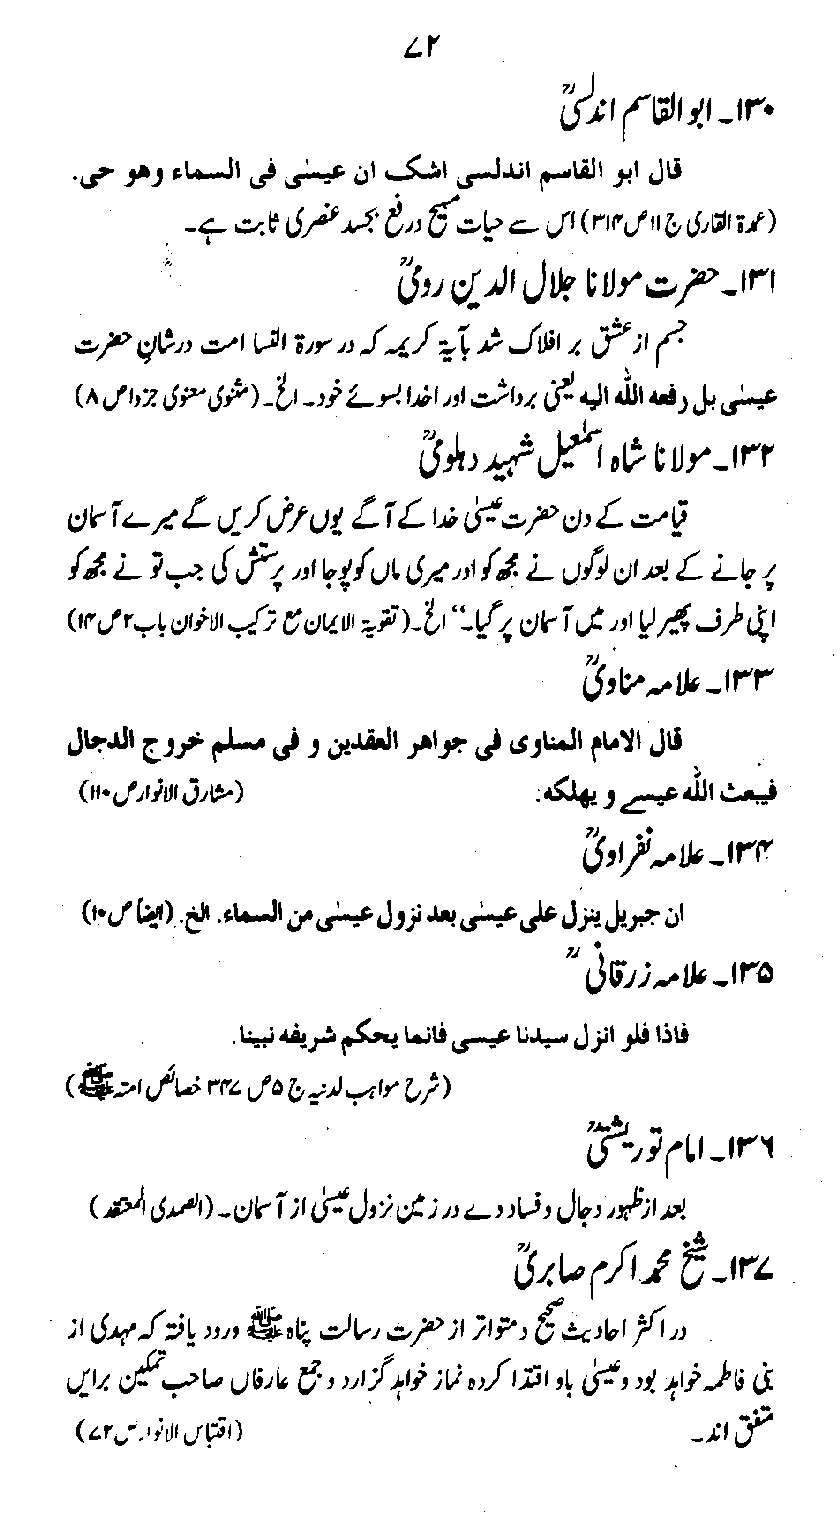 ۷۲
۱۳۰۔ ابو القاسم اندلسیؒ
قال ابو القاسم اندلسی اشک ان عیسٰی فی السماء وھو حی.
(عمدۃ القاری ج۱۱ ص۳۱۴) اس سے حیات مسیح ورفع بجسد عنصری ثابت ہے۔
۱۳۱۔ حضرت مولانا جلال الدین رومیؒ
جسم از عشق بر افلاک شد بآیۃ کریمہ کہ در سورۃ النسا است درشانِ حضرت
عیسٰی بل رفعہ اللہ الیہ یعنی برداشت اور اخدا بسوئے خود۔ الخ۔ (مثنوی معنوی جزدا ص۸)
۱۳۲۔ مولانا شاہ اسمٰعیل شہید دہلویؒ
قیامت کے دن حضرت عیسیٰ خدا کے آگے یوں عرض کریں گے میرے آسمان
پر جانے کے بعد ان لوگوں نے مجھ کو اور میری ماں کو پوجا اور پرستش کی جب تو نے مجھ کو
اپنی طرف پھیر لیا اور میں آسمان پر گیا۔“ الخ۔ (تقویۃ الایمان مع ترکیب الاخوان باب۲ ص۱۴)
۱۳۳۔ علامہ مناویؒ
قال الامام المناوی فی جواھر العقدین و فی مسلم خروج الدجال
فیبعث اللہ عیسے و یھلکہ: (مشارق الانوار ص۱۱۰)
۱۳۴۔ علامہ نفراویؒ
ان جبریل ینزل علی عیسٰی بعد نزول عیسٰی من السماء. الخ. (ایضاً ص۱۰)
۱۳۵۔ علامہ زرقانیؒ
فاذا فلو انزل سیدنا عیسی فانما یحکم شریفہ نبینا.
(شرح مواہب لدنیہ ج۵ ص۳۴۷ خصائص امتہ ﷺ)
۱۳۶۔ امام توریشتیؒ
بعد از ظہور دجال وفساد دے در زمین نزول عیسیٰ از آسمان۔ (الصمدی المعتقد)
۱۳۷۔ شیخ محمد اکرم صابریؒ
در اکثر احادیث صحیح ومتواتر از حضرت رسالت پناہ ﷺ ورود یافتہ کہ مہدی از
بنی فاطمہ خواہد بود وعیسیٰ باو اقتدا کردہ نماز خواہد گزارد وجمع عارفاں صاحب تمکین برایں
متفق اند۔ (اقتباس الانوار ص۷۲)